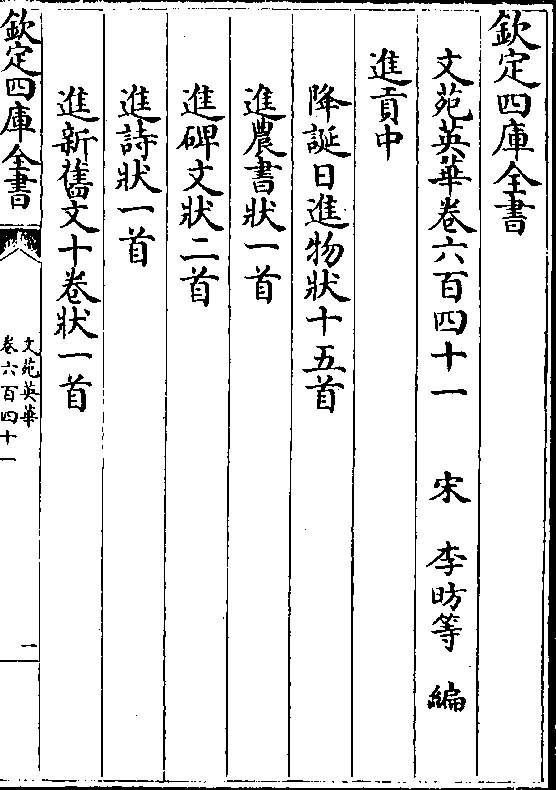 欽定四庫全書
文苑英華卷六百四十一 宋 李昉等 編
進貢中
降誕日進物狀十五首
進農書狀一首
進碑文狀二首
進詩狀一首
進新舊文十卷狀一首
欽定四庫全書
文苑英華
卷六百四十一
一